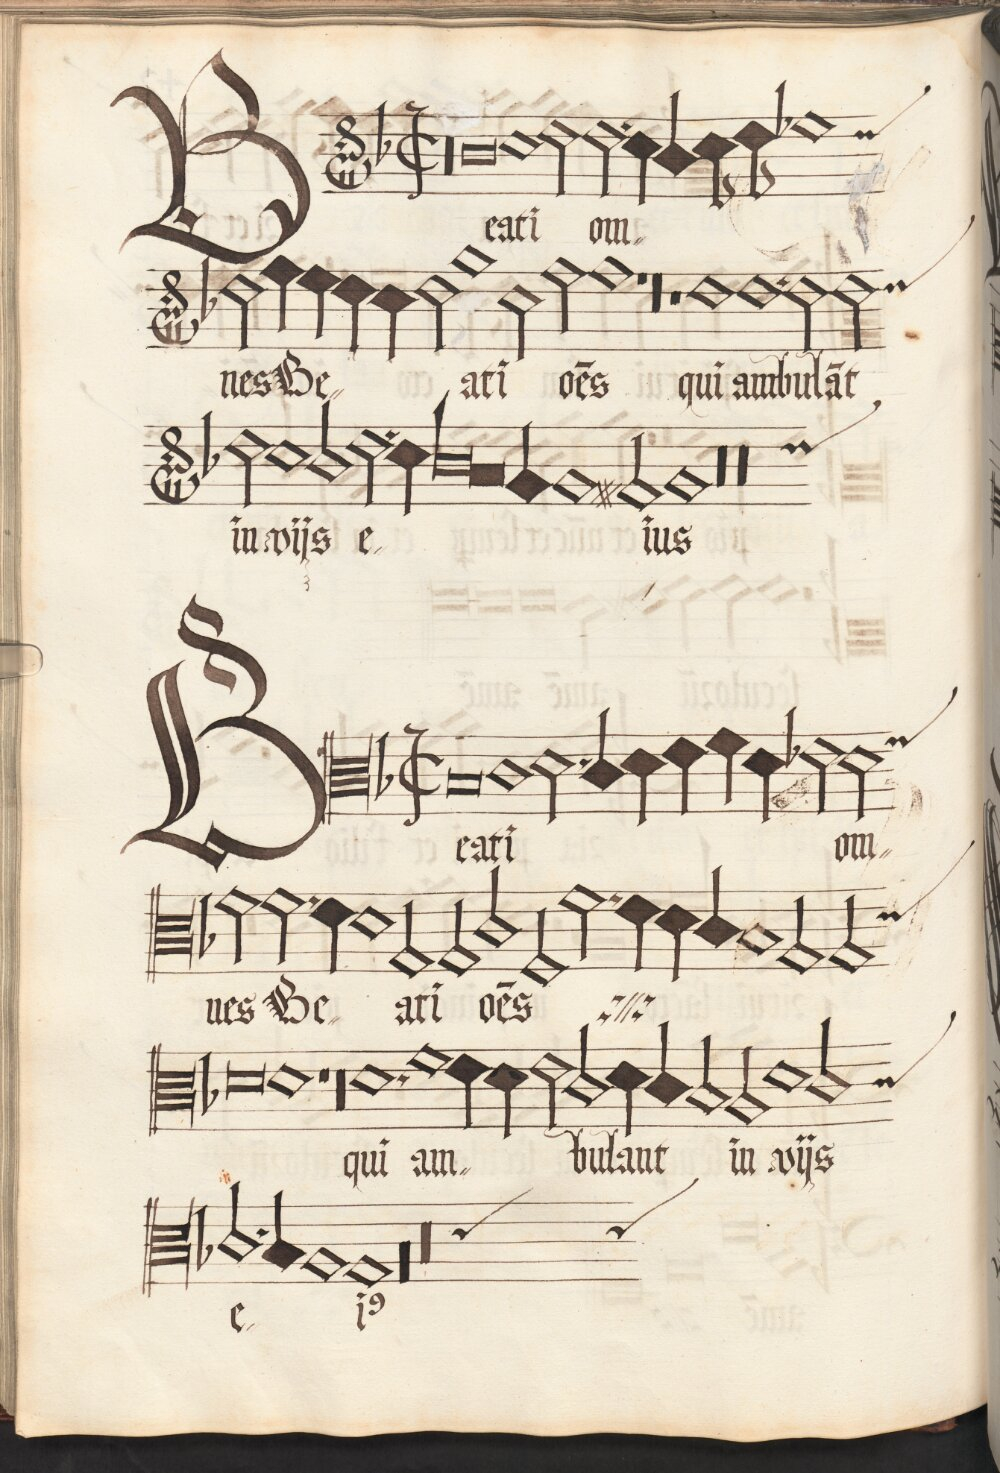 Beati om
nes Be ati oēs qui ambulāt
in vijs e ius
Beati om
nes Be ati oēs
qui am bulant in vijs
e i9